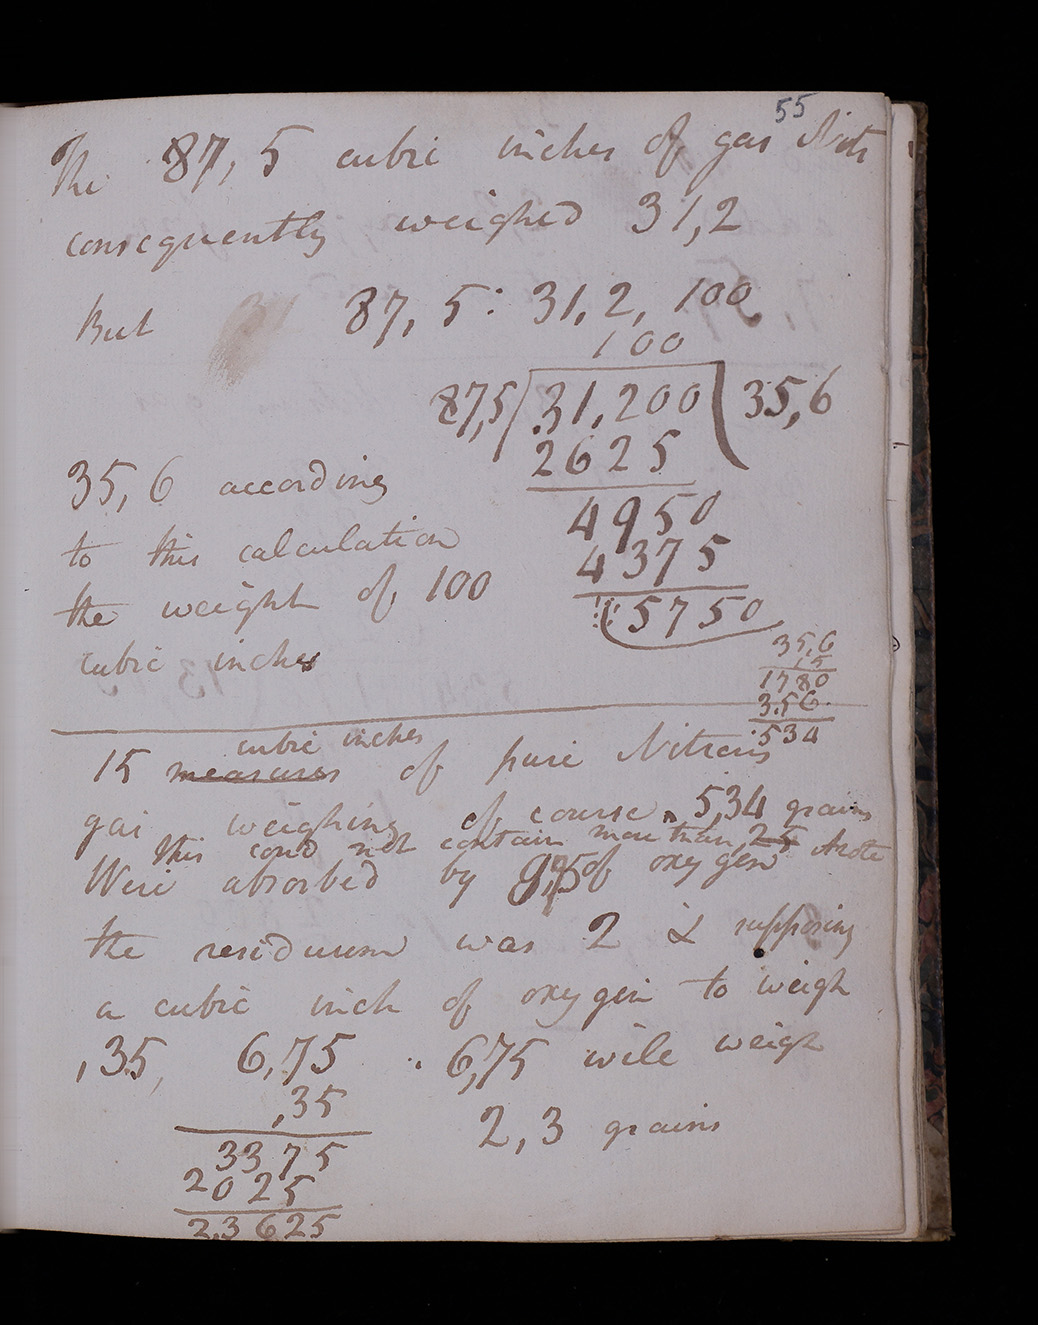 55
The 87,5 cubic inches of gas Nits
consequently weighed 31,2
But 87, 5: 31,2, 100
100
87,5 31,200 35,6
2625
35,6 according
4950
to this calculation
4375
the weight of 100
5750
cubic inches
35,6
,15
1780
3.56.
534
cubic inches
15 measures of pure Nitrous
gas weighing of course 5,34 grains
this coud not contain more than 2 5 Azote
Were absorbed by of oxygen
the residuum was 2 & supposing
a cubic inch of oxygen to weigh
,35, 6,75 6,75 will weigh
,35
2,3 grains
3375
2025
2,3625